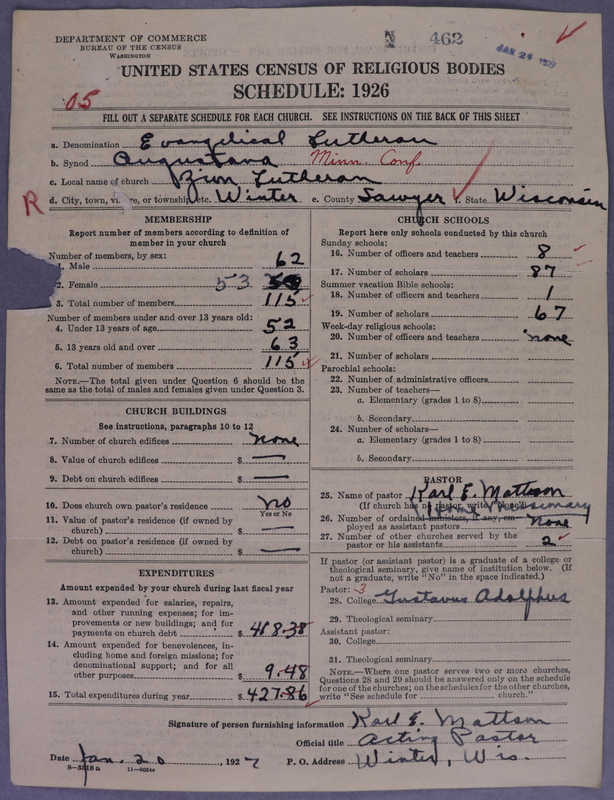 DEPARTMENT OF COMMERCE
BUREAU OF THE CENSUS
WASHINGTON
462
UNITED STATES CENSUS OF RELIGIOUS BODIES
SCHEDULE: 1926
05
FILL OUT A SEPARATE SCHEDULE FOR EACH CHURCH. SEE INSTRUCTIONS ON THE BACK OF THIS SHEET
a. Denomination Evangelical Lutheran
b. Synod Augustana Minn. Conf
c. Local name of church Zion Lutheran
R d. City, town, village, or township, etc. Winter e. County Sawyer f. State Wisconsin
MEMBERSHIP
Report number of members according to definition of
member in your church
Number of members, by sex:
1. Male 62
2. Female 53
3. Total number of members 115
Number of members under and over 13 years old:
4. Under 13 years of age 52
5. 13 years old and over 63
6. Total number of members 115
NOTE.—The total given under Question 6 should be
same as the total of males and females given under Question 3.
CHURCH BUILDINGS
See instructions, paragraphs 10 to 12
7. Number of church edifices none
8. Value of church edifices $ —
9. Debt on church edifices $ —
10. Does church own pastor's residence No
Yes or No
11. Value of pastor's residence (if owned by
church) $ —
12. Debt on pastor's residence (if owned by
church) $ —
EXPENDITURES
Amount expended by your church during last fiscal year
13. Amount expended for salaries, repairs,
and other running expenses; for im-
provements or new buildings; and for
payments on church debt $ 418.38
14. Amount expended for benevolences, in-
cluding home and foreign missions; for
denominational support; and for all
other purposes $ 9.48
15. Total expenditures during year $ 427.86
CHURCH SCHOOLS
Report here only schools conducted by this church
Sunday schools:
16. Number of officers and teachers 8
17. Number of scholars 87
Summer vacation Bible schools:
18. Number of officers and teachers 1
19. Number of scholars 67
Week-day religious schools:
20. Number of officers and teachers none
21. Number of scholars
Parochial schools:
22. Number of administrative officers
23. Number of teachers—
a. Elementary (grades 1 to 8)
b. Secondary
24. Number of scholars—
a. Elementary (grades 1 to 8)
b. Secondary
PASTOR
25. Name of pastor Karl E. Mattson
(If church has no pastor, write "None")
Home Missionary
26. Number of ordained ministers, if any, em-
ployed as assistant pastors none
27. Number of other churches served by the
pastor or his assistants 2
If pastor (or assistant pastor) is a graduate of a college or
theological seminary, give name of institution below. (If
not a graduate, write "No" in the space indicated.)
Pastor: 3
28. College Gustavus Adolphus
29. Theological seminary
Assistant pastor:
30. College
31. Theological seminary
NOTE.—Where one pastor serves two or more churches,
Questions 28 and 29 should be answered only on the schedule
for one of the churches; on the schedules for the other churches,
write "See schedule for church."
Signature of person furnishing information Karl E. Mattson
Official title Acting Pastor
Date Jan. 20, 1927 P. O. Address Winter, Wis.